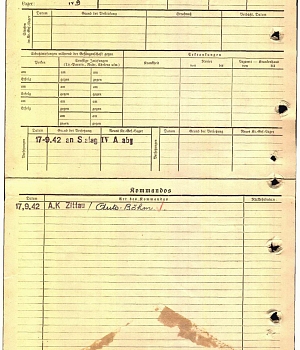 Lager: IV B
Datum Grund der Bestrafung Strafmaß Verbüßt, Datum
Schutzimpfungen während der Gefangenschaft gegen
Erkrankungen
Pocken
Sonstige Impfungen
Krankheit
Revier
Lazarett — Krankenhaus
von bis von bis
am am am
Erfolg gegen gegen
am am am
Erfolg gegen gegen
am am am
Erfolg gegen gegen
am am am
Erfolg gegen gegen
Datum Grund der Versetzung Neues Kr.-Gef.-Lager Datum Grund der Versetzung Neues Kr.-Gef.-Lager
17-9.42 an Stalag IV A abg
Kommandos
Datum Art des Kommandos Rückkehrdatum
17.9.42 A.K Zittau / Auto-Böhm